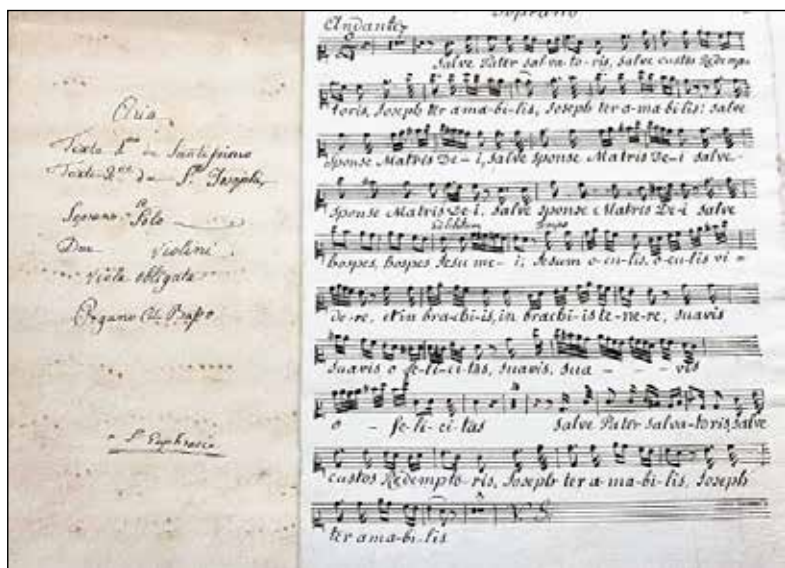 Aria
Texte 1mo de Santissimo
Texte 2do de S. Joseph
Soprano Solo
Due Violini
Viola obligata
Organo Col Basso
Euphrosia
Soprano
Andante
Salve Pater salva-to-ris, salve custos Redemp-
toris, Joseph ter amabi-lis, Joseph ter a-ma-bi-lis; salve
Sponse Matris De-i, salve Sponse Matris De-i salve-
Sponse Matris De-i, salve Sponse Matris De-i salve
hospes, hospes Jesu me-i; Jesum o-cu-lis, o-cu-lis vi-
de-re, et in bra-chi-is, in brachi-is te-ne-re, suavis
suavis o fe-li-ci-tas, suavis, sua - - - vis
o - fe-li-ci-tas salve Pater salva-toris, salve
custos Redempto-ris, Joseph ter a-ma-bi-lis, Joseph
ter ama-bi-lis